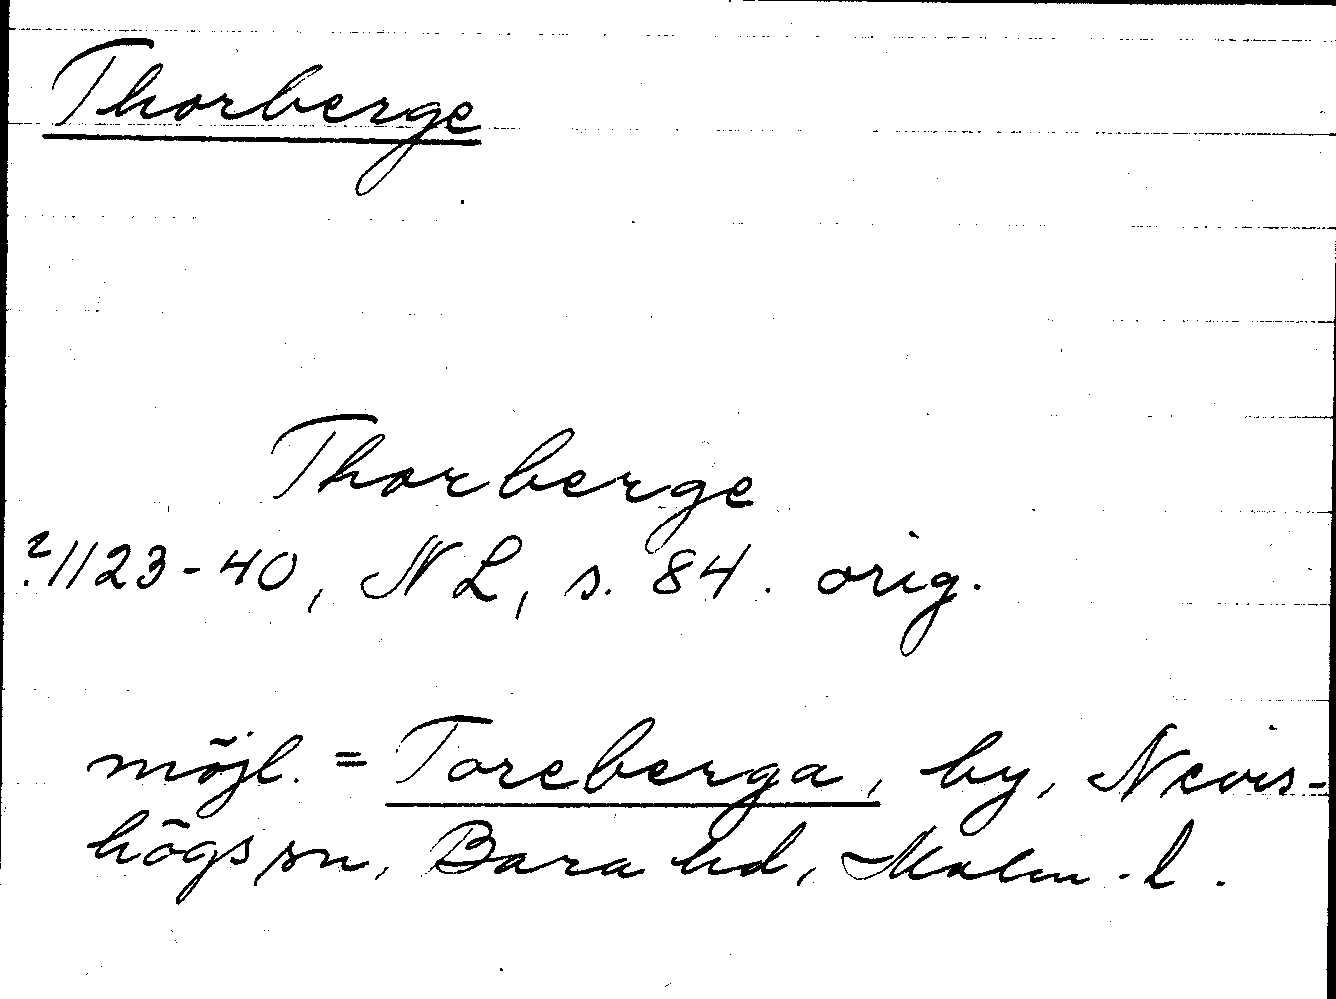 Thorberge
Thorberge
?1123-40, NL, s. 84. orig.
möjl. = Toreberga, by, Nevis-
högs sn, Bara hd, Malm. l.